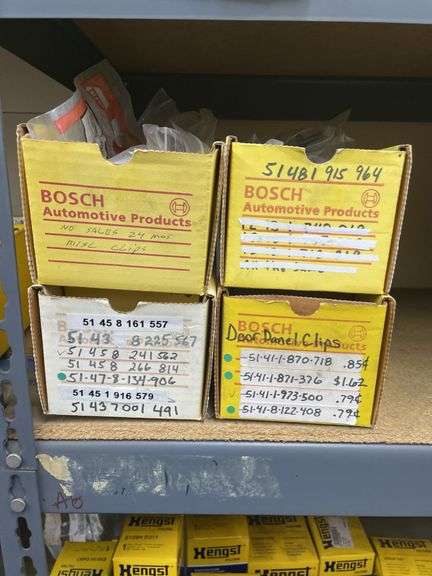 BOSCH
Automotive Products
NO SALES 24 MOS
MISC CLIPS
51481 915 964
BOSCH
Automotive Products
51 45 8 161 557
51 43 8 225 567
51 45 8 241562
51 45 8 266 814
51-47-8-134-906
51 45 1 916 579
51 43 7 001 491
Door Panel Clips
51-41-1-870-718 .85¢
51-41-1-871-376 $1.62
51-41-1-973-500 .79¢
51-41-8-122-408 .79¢
Hengst
Hengst
Hengst
Hengst
Hengst
Hengst